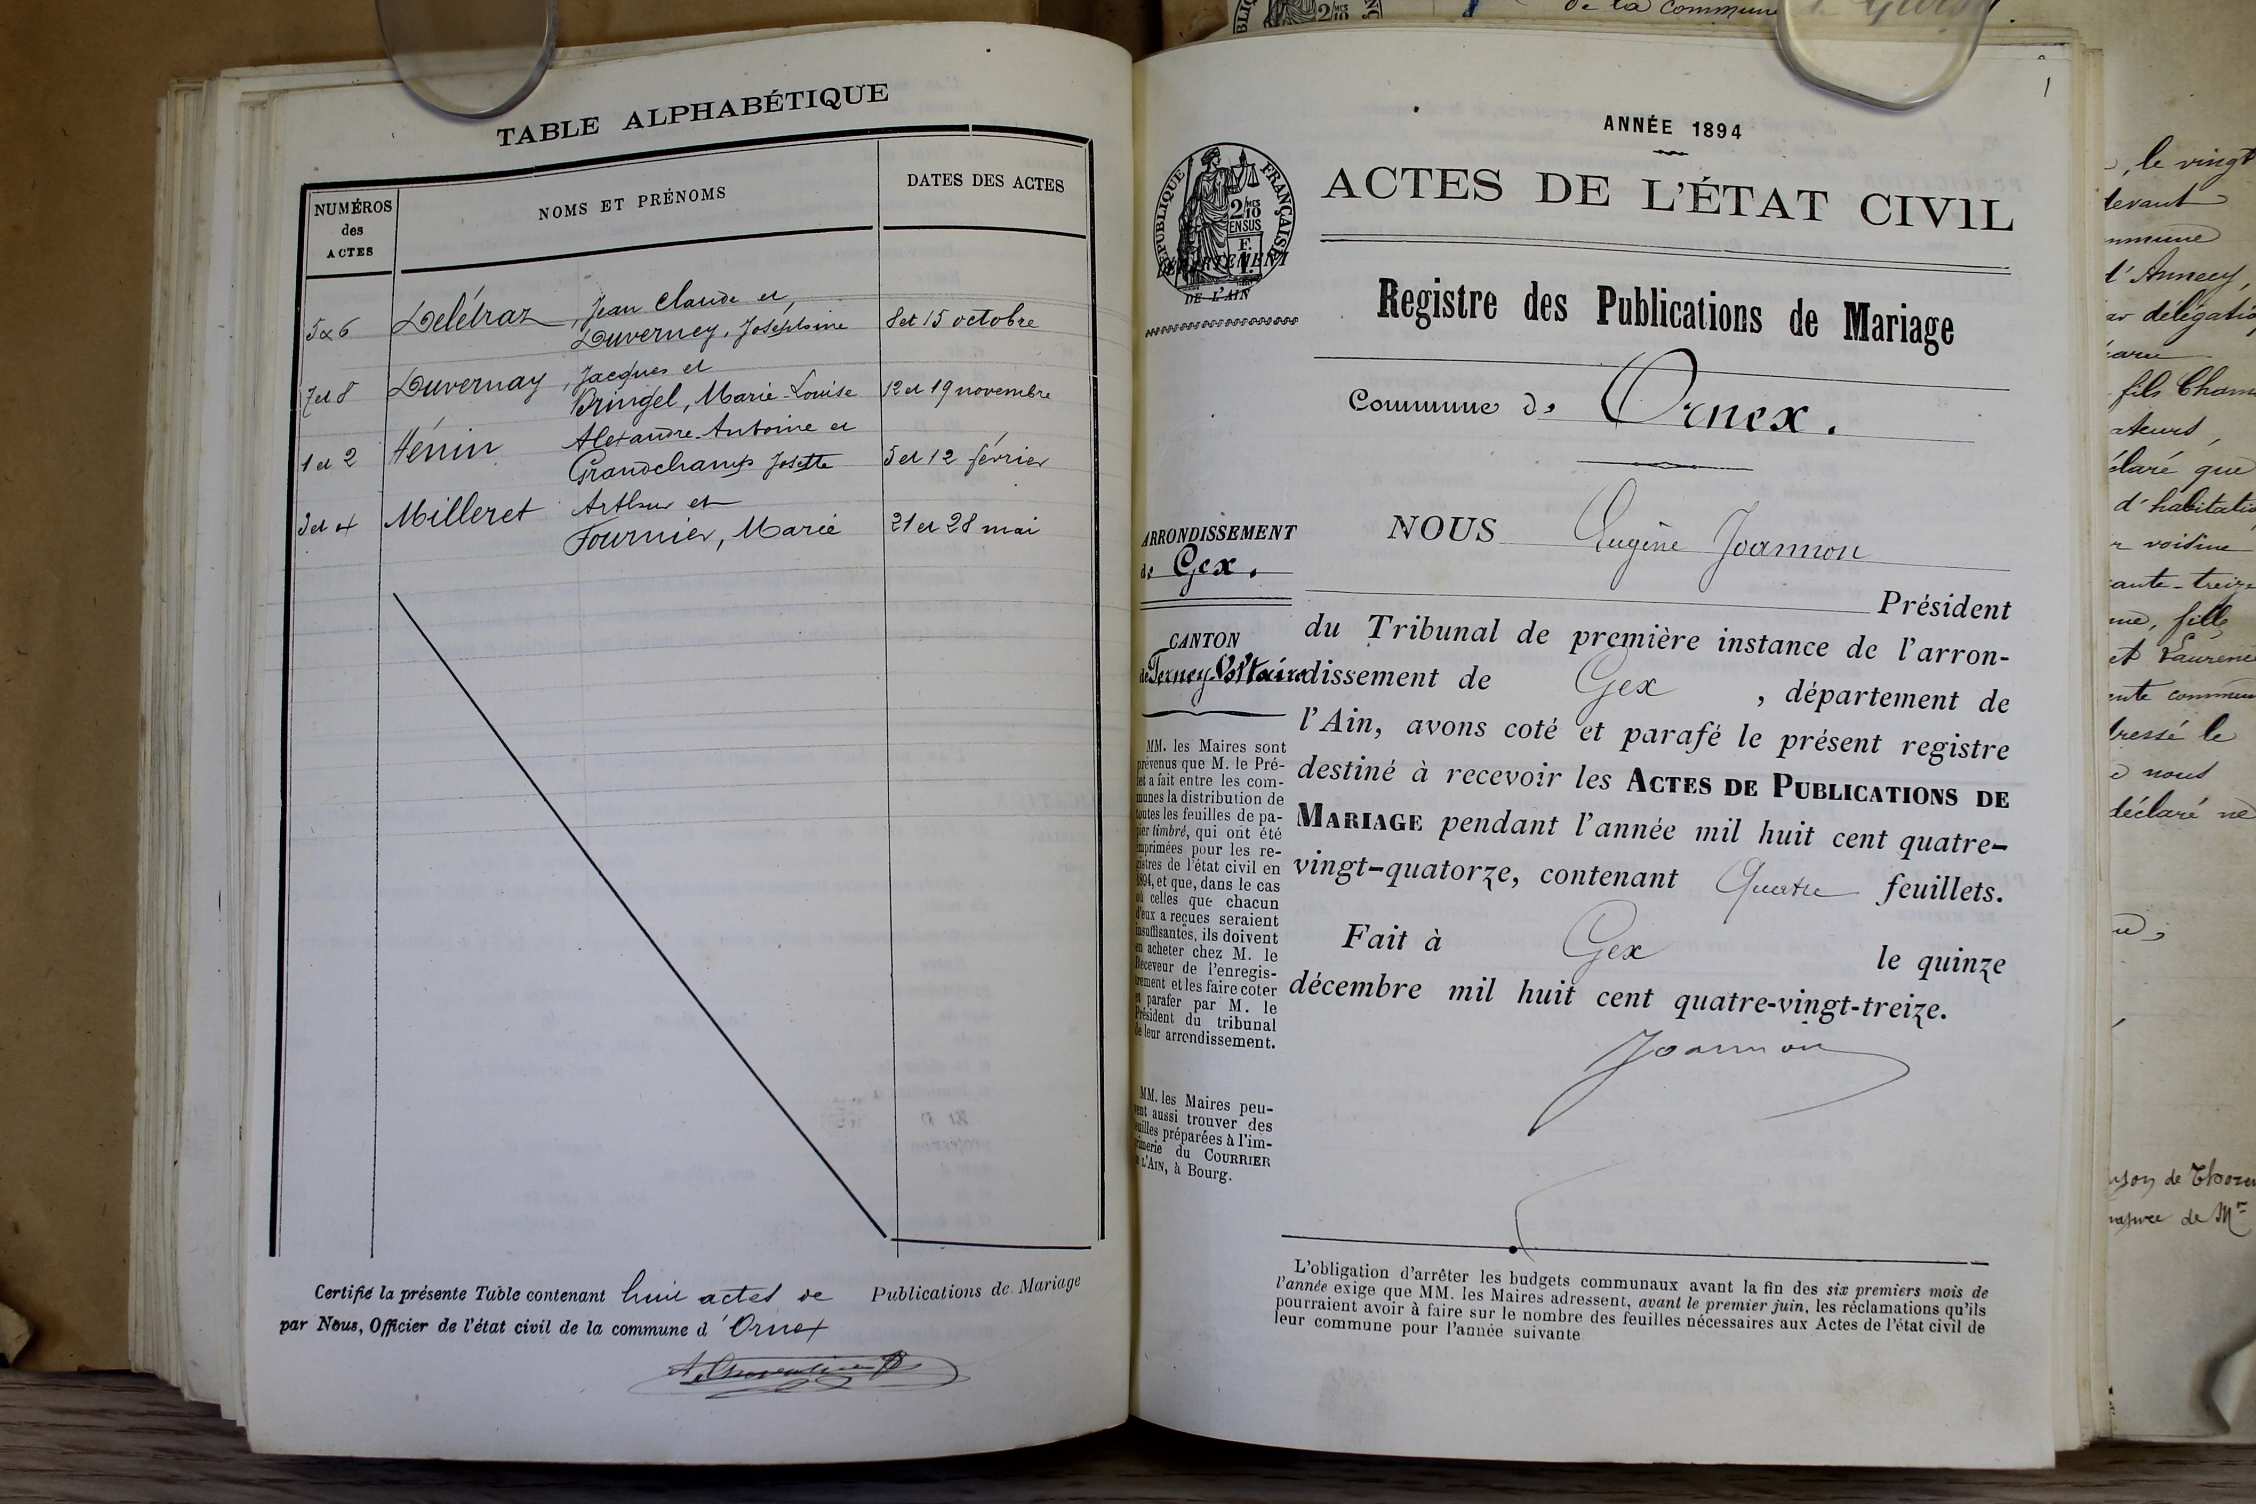 TABLE ALPHABÉTIQUE
NUMÉROS
des
ACTES
NOMS ET PRÉNOMS
DATES DES ACTES
5 & 6 Delétraz, Jean Claude et
Duverney, Joséphine 8 et 15 octobre
7 et 8 Duvernay, Jacques et
Bringel, Marie-Louise 12 et 19 novembre
1 et 2 Hénin Alexandre-Antoine et
Grandchamp Josette 5 et 12 février
3 et 4 Milleret Arthur et
Fournier, Marie 21 et 28 mai
Certifié la présente Table contenant huit actes de Publications de Mariage
par Nous, Officier de l'état civil de la commune d'Ornex
1
ANNÉE 1894
ACTES DE L'ÉTAT CIVIL
RÉPUBLIQUE FRANÇAISE
2/10
EN SUS
DÉPARTEMENT
DE L'AIN
Registre des Publications de Mariage
Commune de Ornex.
ARRONDISSEMENT
de Gex.
CANTON
de Ferney-Voltaire
MM. les Maires sont
prévenus que M. le Pré-
fet a fait entre les com-
munes la distribution de
toutes les feuilles de pa-
pier timbré, qui ont été
imprimées pour les re-
gistres de l'état civil en
1894, et que, dans le cas
où celles que chacun
d'eux a reçues seraient
insuffisantes, ils doivent
en acheter chez M. le
Receveur de l'enregis-
trement et les faire coter
et parafer par M. le
Président du tribunal
de leur arrondissement.
MM. les Maires peu-
vent aussi trouver des
feuilles préparées à l'im-
primerie du COURRIER
DE L'AIN, à Bourg.
NOUS Eugène Joannon
Président
du Tribunal de première instance de l'arron-
dissement de Gex, département de
l'Ain, avons coté et parafé le présent registre
destiné à recevoir les ACTES DE PUBLICATIONS DE
MARIAGE pendant l'année mil huit cent quatre-
vingt-quatorze, contenant Quatre feuillets.
Fait à Gex le quinze
décembre mil huit cent quatre-vingt-treize.
Joannon
L'obligation d'arrêter les budgets communaux avant la fin des six premiers mois de
l'année exige que MM. les Maires adressent, avant le premier juin, les réclamations qu'ils
pourraient avoir à faire sur le nombre des feuilles nécessaires aux Actes de l'état civil de
leur commune pour l'année suivante
de la commune
, le vingt
devant
d'Annecy,
délégation
fils
claré que
voisine
ante-treize
fille
et
ressé le
nous
déclaré ne
de
de Mr